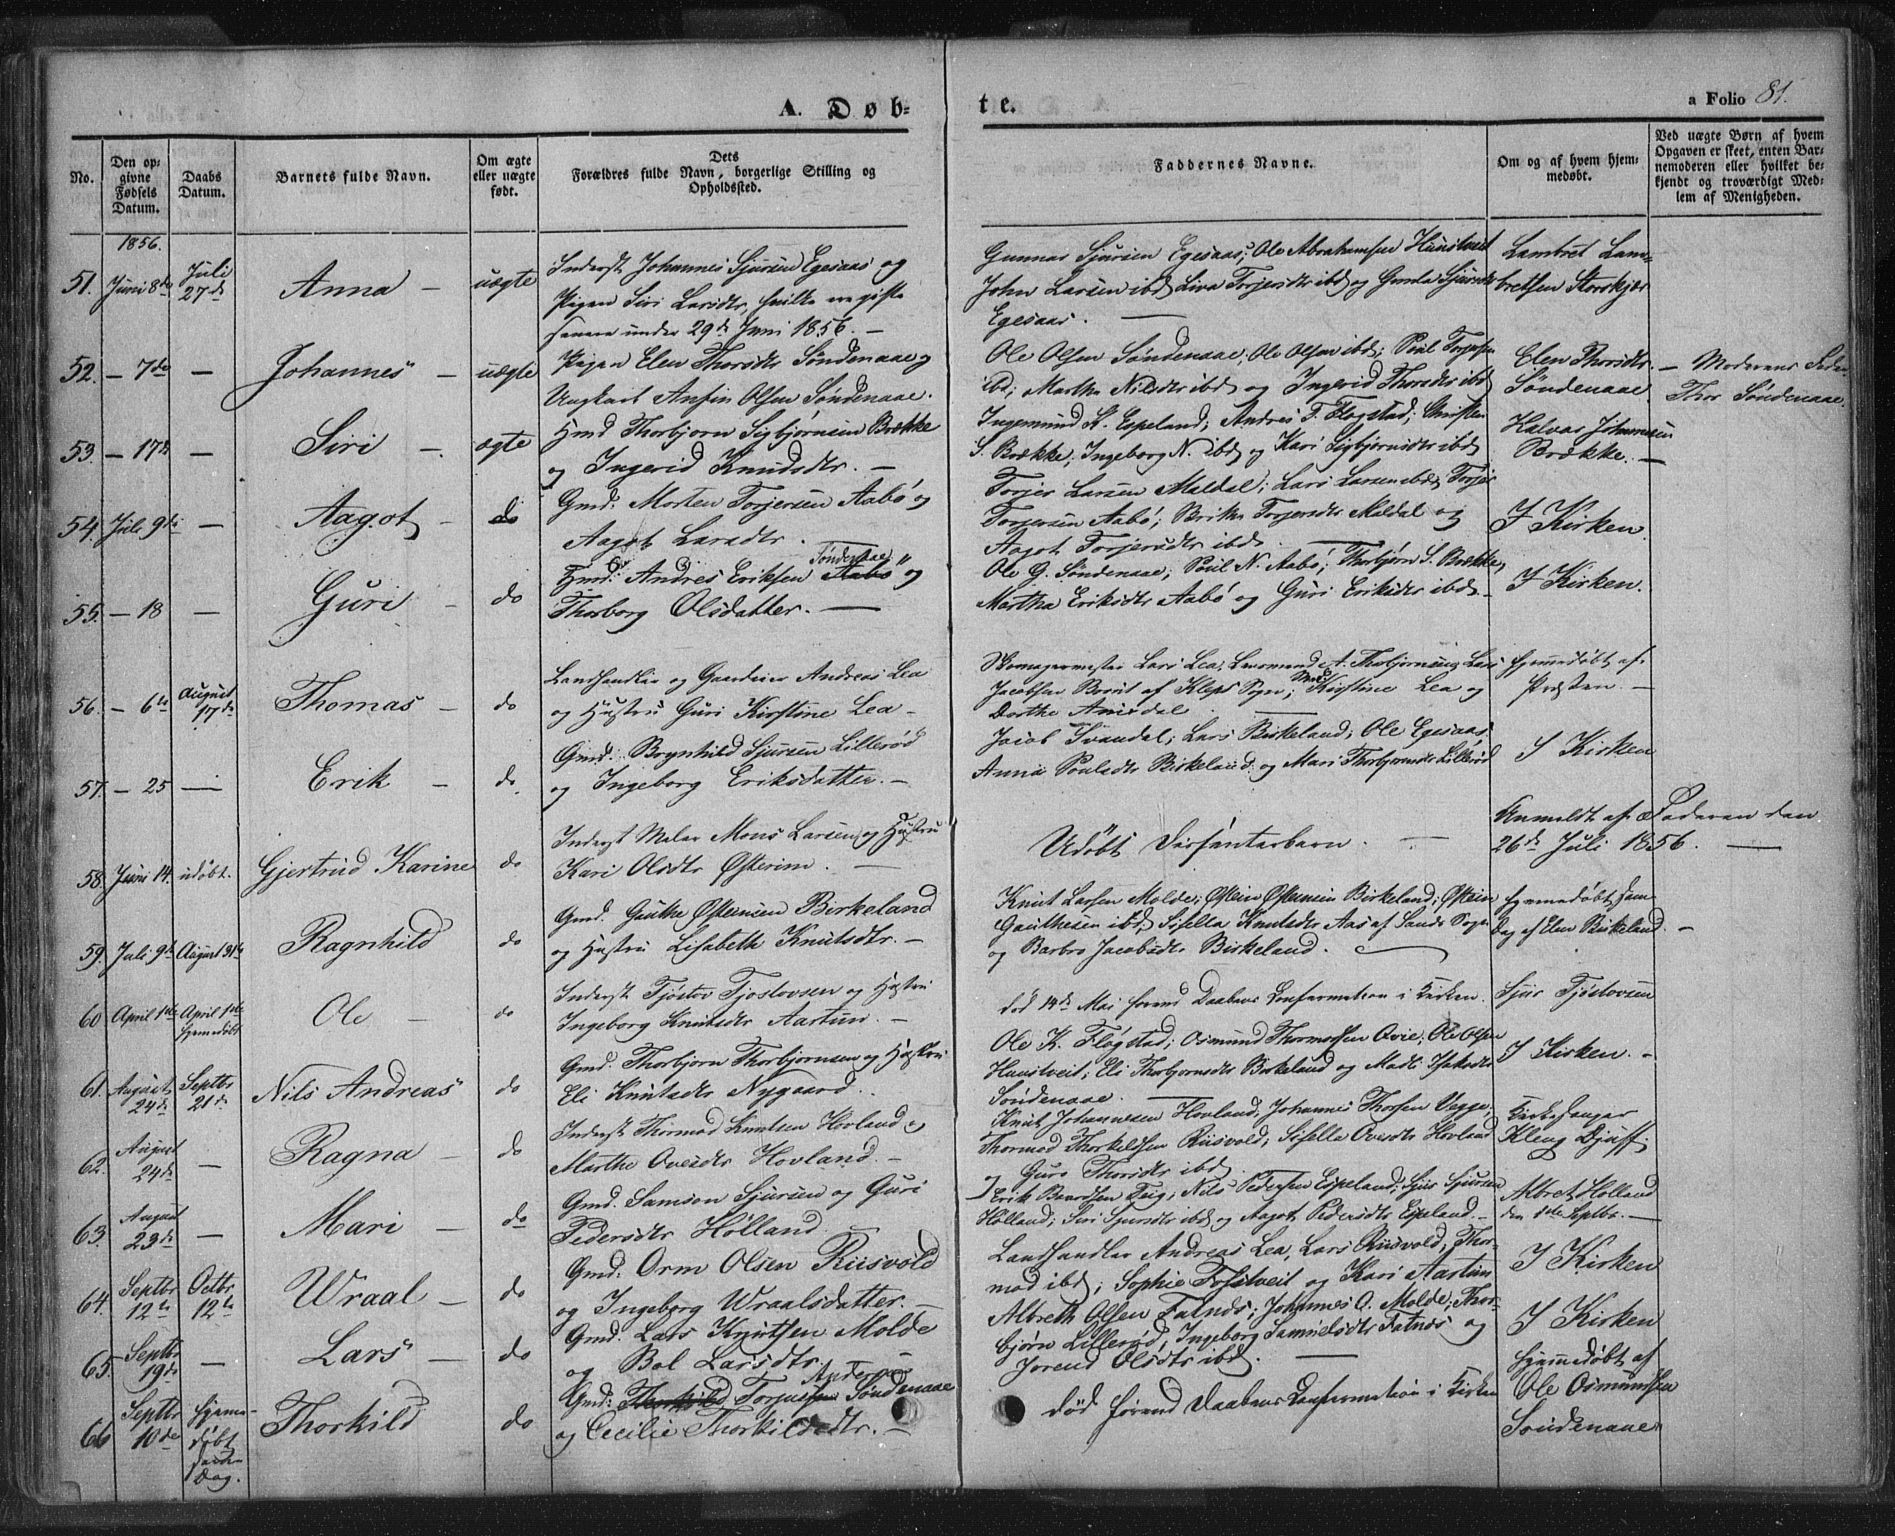 A. Døb-
te.
a Folio 81.
No.
Den op-
givne
Fødsels
Datum.
Daabs
Datum.
Barnets fulde Navn.
Om ægte
eller uægte
født.
Dets
Forældres fulde Navn, borgerlige Stilling og
Opholdssted.
Faddernes Navne.
Om og af hvem hjem-
medøbt.
Ved uægte Børn af hvem
Opgaven er skeet, enten Bar-
nemoderen eller hvilket be-
kjendt og troværdigt Med-
lem af Menigheden.
1856.
51. Juni 8de
Juli
27de
Anna –
uægte
Inderst Johannes Sjursen Egesaas og
Pigen Siri Larsdtr hvilke ere gifte
senere under 29de Juni 1856. –
Gunnar Sjursen Egesaas; Ole Abrahamsen Hunstveit
John Larsen ibd Liva Torjersdtr ibd og Gunla Sjursdtr
Egesaas. –
Lambret Lam-
bretsen Storskjær
52. – 7de –
Johannes –
uægte
Pigen Elen Thorsdtr Søndenaae og
Ungkarl Anfin Olsen Søndenaae.
Ole Olsen Søndenaae; Ole Olsen ibd; Poul Torjesen
ibd; Martha Nilsdtr ibd og Ingerid Thorsdtr ibd
Elen Thorsdtr
Søndenaae
– Moderens Fader
Thor Søndenaae.
53. – 17de –
Siri –
ægte
Gmd Thorbjørn Sigbjørnsen Brække
og Ingerid Knudsdtr. –
Ingemund K. Espeland; Andres T. Flogstad; Christen
S. Brække; Ingeborg N. ibd og Kari Sigbjørnsdtr ibd
Halvar Johannesen
Brække. –
54. Juli 9de –
Aagot –
do
Gmd: Morten Torjersen Aabø og
Aagot Larsdtr.
Torjer Larsen Maldal; Lars Larsen ibd; Torjer
Torjersen Aabø; Britha Torjersdtr Maldal og
Aagot Torjersdtr ibd.
I Kirken.
55. – 18 –
Guri –
do
Søndenaae
Gmd: Andres Eriksen Aabø og
Thorborg Olsdatter. –
Ole G. Søndenaae; Poul N. Aabø; Thorbjørn S. Brække
Martha Eriksdtr Aabø og Guri Eriksdtr ibd –
I Kirken.
56. – 6te
August
17de
Thomas –
do
Landhandler og Gaardeier Andreas Lea
og Hustru Guri Kirstine Lea –
Skomagermester Lars Lea, Lensmand A. Thorbjørnsen; Lars
Jacobsen Borut af Kleps Sogn; Kirstine Lea og
Dorthe Amsdal
Hjemmedøbt af
Præsten –
57. – 25 –
Erik –
do
Gmd: Brynhild Sjursen Lillerød
og Ingeborg Eriksdatter. –
Jacob Svandal; Lars Birkeland; Ole Egesaas
Anna Poulsdtr Birkeland og Mari Thorbjørnsdtr Lillerød
I Kirken
58. Juni 14. udøbt.
Gjertrud Karine
do
Inderst Maler Mons Larsen og Hustru
Kari Olsdtr Østerim. –
Udøbt Dissenterbarn. –
Anmeldt af Faderen den
26de Juli 1856. –
59. Juli 9de August 31te
Ragnhild
do
Gmd. Gauthe Østensen Birkeland
og Hustru Lisabeth Knutsdtr. –
Knut Larsen Molde; Østein Østensen Birkeland; Østein
Gauthesen ibd; Sisella Knutsdtr Aas af Sands Sogn
og Barbro Jacobsdtr Birkeland.
Hjemmedøbt sam-
Dag af Elen Birkeland. –
60 April 1ste April 1ste
hjemmedøbt
Ole –
do
Inderst Tjøstov Tjostovsen og Hustru
Ingeborg Knutsdtr Aartun. –
død 14de Mai forend Daabens Confirmation i Kirken.
Sjur Tjøstovsen
61. August
24de
Septbr
21de
Nils Andreas
do
Gmd. Thorbjørn Thorbjørnsen og Hustru
Eli Knutsdtr Nygaard.
Ole K. Fløgstad; Osmund Thormodsen Ovie; Ole Olsen
Hunstveit; Eli Thorbjørnsdtr Birkeland og Madli Isaksdtr
Søndenaae. –
I Kirken. –
62. August
24de –
Ragna –
do
Inderst Thormod Knutsen Hovland og
Marthe Ovesdtr Hovland. –
Knut Johannesen Hovland; Johannes Thorsen Vegge;
Thormod Thorkelsen Riisvold; Sisella Ovesdtr Hovland
og Guro Thorsdtr ibd
Kirkesanger
Kleng Djuff;
63. August
23de –
Mari –
do
Gmd. Samson Sjursen og Guri
Pedersdtr Hølland
Erik Bendsen Teig; Nils Pedersen Espeland; Sjur Sjursen
Hølland; Siri Sjursdtr ibd og Aagot Pedersdtr Espeland. –
Albret Holland
den 1ste Septbr. –
64. Septbr
12te
Octbr.
12te
Wraal –
do
Gmd: Orm Olsen Riisvold
og Ingeborg Wraalsdatter. –
Landhandler Andreas Lea, Lars Riisvold; Thor-
mod ibd; Sophie Tostveit og Kari Aartun
I Kirken
65. Septbr
19de –
Lars –
do
Gmd. Lars Knutsen Molde
og Bol Larsdtr.
Albreth Olsen Fatnæs; Johannes O. Molde; Thor-
bjørn Lillerød; Ingeborg Samuelsdtr Fatnæs og
Jorend Olsdtr ibd. –
I Kirken
66 Septbr
10de
hjemme-
døbt
samme
Dag.
Thorkild
do
Anders
Gmd: Thorkild Torjusen Søndenaae
og Cecilie Thorkildsdtr. –
død førend Daabens Confirmation i Kirken
Hjemmedøbt af
Ole Osmundsen
Søndenaae